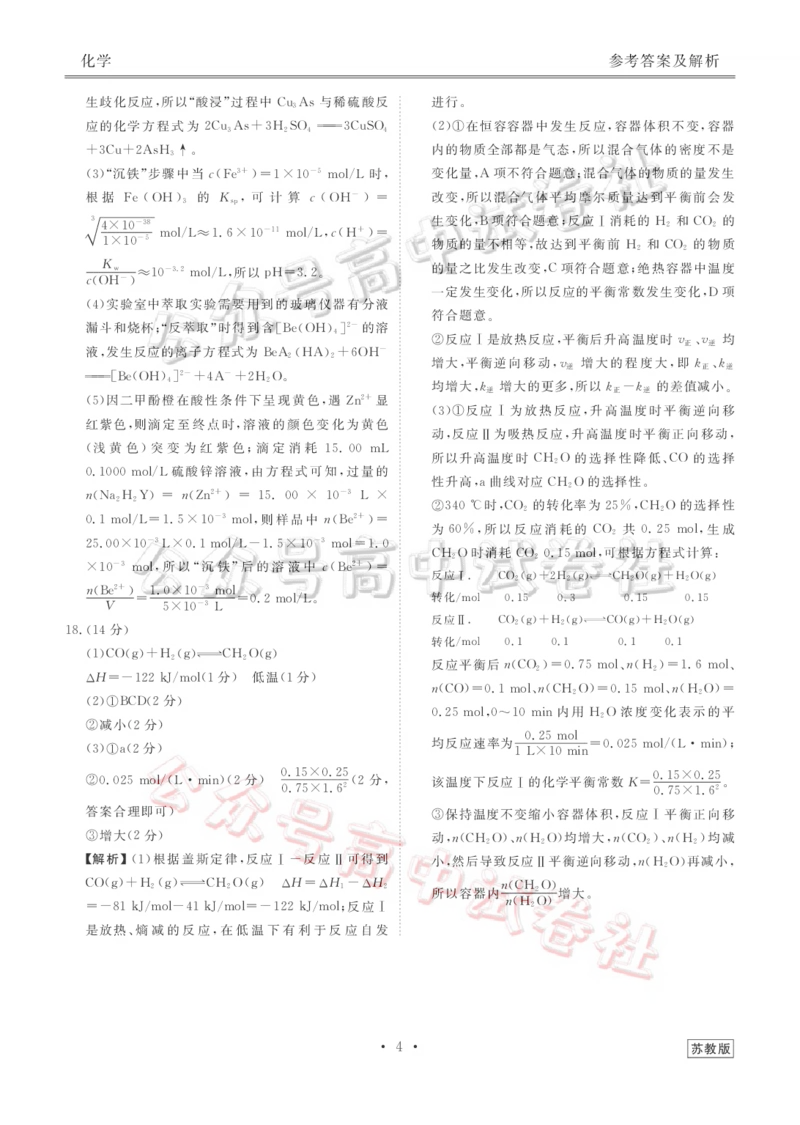 化学
参考答案及解析
生歧化反应,所以“酸浸”过程中 Cu₃As 与稀硫酸反
应的化学方程式为 2Cu₃As+3H₂SO₄ ══3CuSO₄
+3Cu+2AsH₃↑。
(3)“沉铁”步骤中当 c(Fe³⁺)=1×10⁻⁵ mol/L 时,
根据 Fe(OH)₃ 的 Kₛₚ,可计算 c(OH⁻)=
∛(4×10⁻³⁸/1×10⁻⁵) mol/L≈1.6×10⁻¹¹ mol/L,c(H⁺)=
K_w/c(OH⁻)≈10⁻³·² mol/L,所以 pH=3.2。
(4)实验室中萃取实验需要用到的玻璃仪器有分液
漏斗和烧杯;“反萃取”时得到含[Be(OH)₄]²⁻的溶
液,发生反应的离子方程式为 BeA₂(HA)₂+6OH⁻
══[Be(OH)₄]²⁻+4A⁻+2H₂O。
(5)因二甲酚橙在酸性条件下呈现黄色,遇 Zn²⁺ 显
红紫色,则滴定至终点时,溶液的颜色变化为黄色
(浅黄色)突变为红紫色;滴定消耗 15.00 mL
0.1000 mol/L 硫酸锌溶液,由方程式可知,过量的
n(Na₂H₂Y) = n(Zn²⁺) = 15.00 × 10⁻³ L ×
0.1 mol/L=1.5×10⁻³ mol,则样品中 n(Be²⁺)=
25.00×10⁻³L×0.1 mol/L-1.5×10⁻³ mol=1.0
×10⁻³ mol,所以“沉铁”后的溶液中 c(Be²⁺)=
n(Be²⁺)/V=1.0×10⁻³ mol/5×10⁻³ L=0.2 mol/L。
18.(14 分)
(1)CO(g)+H₂(g)⇌CH₂O(g)
ΔH=-122 kJ/mol(1分) 低温(1分)
(2)①BCD(2分)
②减小(2分)
(3)①a(2分)
②0.025 mol/(L·min)(2分) 0.15×0.25/0.75×1.6²(2分,
答案合理即可)
③增大(2分)
【解析】(1)根据盖斯定律,反应Ⅰ-反应Ⅱ可得到
CO(g)+H₂(g)⇌CH₂O(g) ΔH=ΔH₁-ΔH₂
=-81 kJ/mol-41 kJ/mol=-122 kJ/mol;反应Ⅰ
是放热、熵减的反应,在低温下有利于反应自发
进行。
(2)①在恒容容器中发生反应,容器体积不变,容器
内的物质全部都是气态,所以混合气体的密度不是
变化量,A项不符合题意;混合气体的物质的量发生
改变,所以混合气体平均摩尔质量达到平衡前会发
生变化,B项符合题意;反应Ⅰ消耗的 H₂ 和 CO₂ 的
物质的量不相等,故达到平衡前 H₂ 和 CO₂ 的物质
的量之比发生改变,C项符合题意;绝热容器中温度
一定发生变化,所以反应的平衡常数发生变化,D项
符合题意。
②反应Ⅰ是放热反应,平衡后升高温度时 v正、v逆 均
增大,平衡逆向移动,v逆 增大的程度大,即 k正、k逆
均增大,k逆 增大的更多,所以 k正-k逆 的差值减小。
(3)①反应Ⅰ为放热反应,升高温度时平衡逆向移
动,反应Ⅱ为吸热反应,升高温度时平衡正向移动,
所以升高温度时 CH₂O 的选择性降低、CO 的选择
性升高,a曲线对应 CH₂O 的选择性。
②340 ℃时,CO₂ 的转化率为 25%,CH₂O 的选择性
为 60%,所以反应消耗的 CO₂ 共 0.25 mol,生成
CH₂O 时消耗 CO₂ 0.15 mol,可根据方程式计算:
反应Ⅰ. CO₂(g)+2H₂(g)⇌CH₂O(g)+H₂O(g)
转化/mol 0.15 0.3 0.15 0.15
反应Ⅱ. CO₂(g)+H₂(g)⇌CO(g)+H₂O(g)
转化/mol 0.1 0.1 0.1 0.1
反应平衡后 n(CO₂)=0.75 mol、n(H₂)=1.6 mol、
n(CO)=0.1 mol、n(CH₂O)=0.15 mol、n(H₂O)=
0.25 mol,0~10 min内用 H₂O 浓度变化表示的平
均反应速率为 0.25 mol/1 L×10 min=0.025 mol/(L·min);
该温度下反应Ⅰ的化学平衡常数 K=0.15×0.25/0.75×1.6²。
③保持温度不变缩小容器体积,反应Ⅰ平衡正向移
动,n(CH₂O)、n(H₂O)均增大,n(CO₂)、n(H₂)均减
小,然后导致反应Ⅱ平衡逆向移动,n(H₂O)再减小,
所以容器内 n(CH₂O)/n(H₂O) 增大。
公众号高中试卷社
公众号高中试卷社
公众号高中试卷社
· 4 ·
苏教版